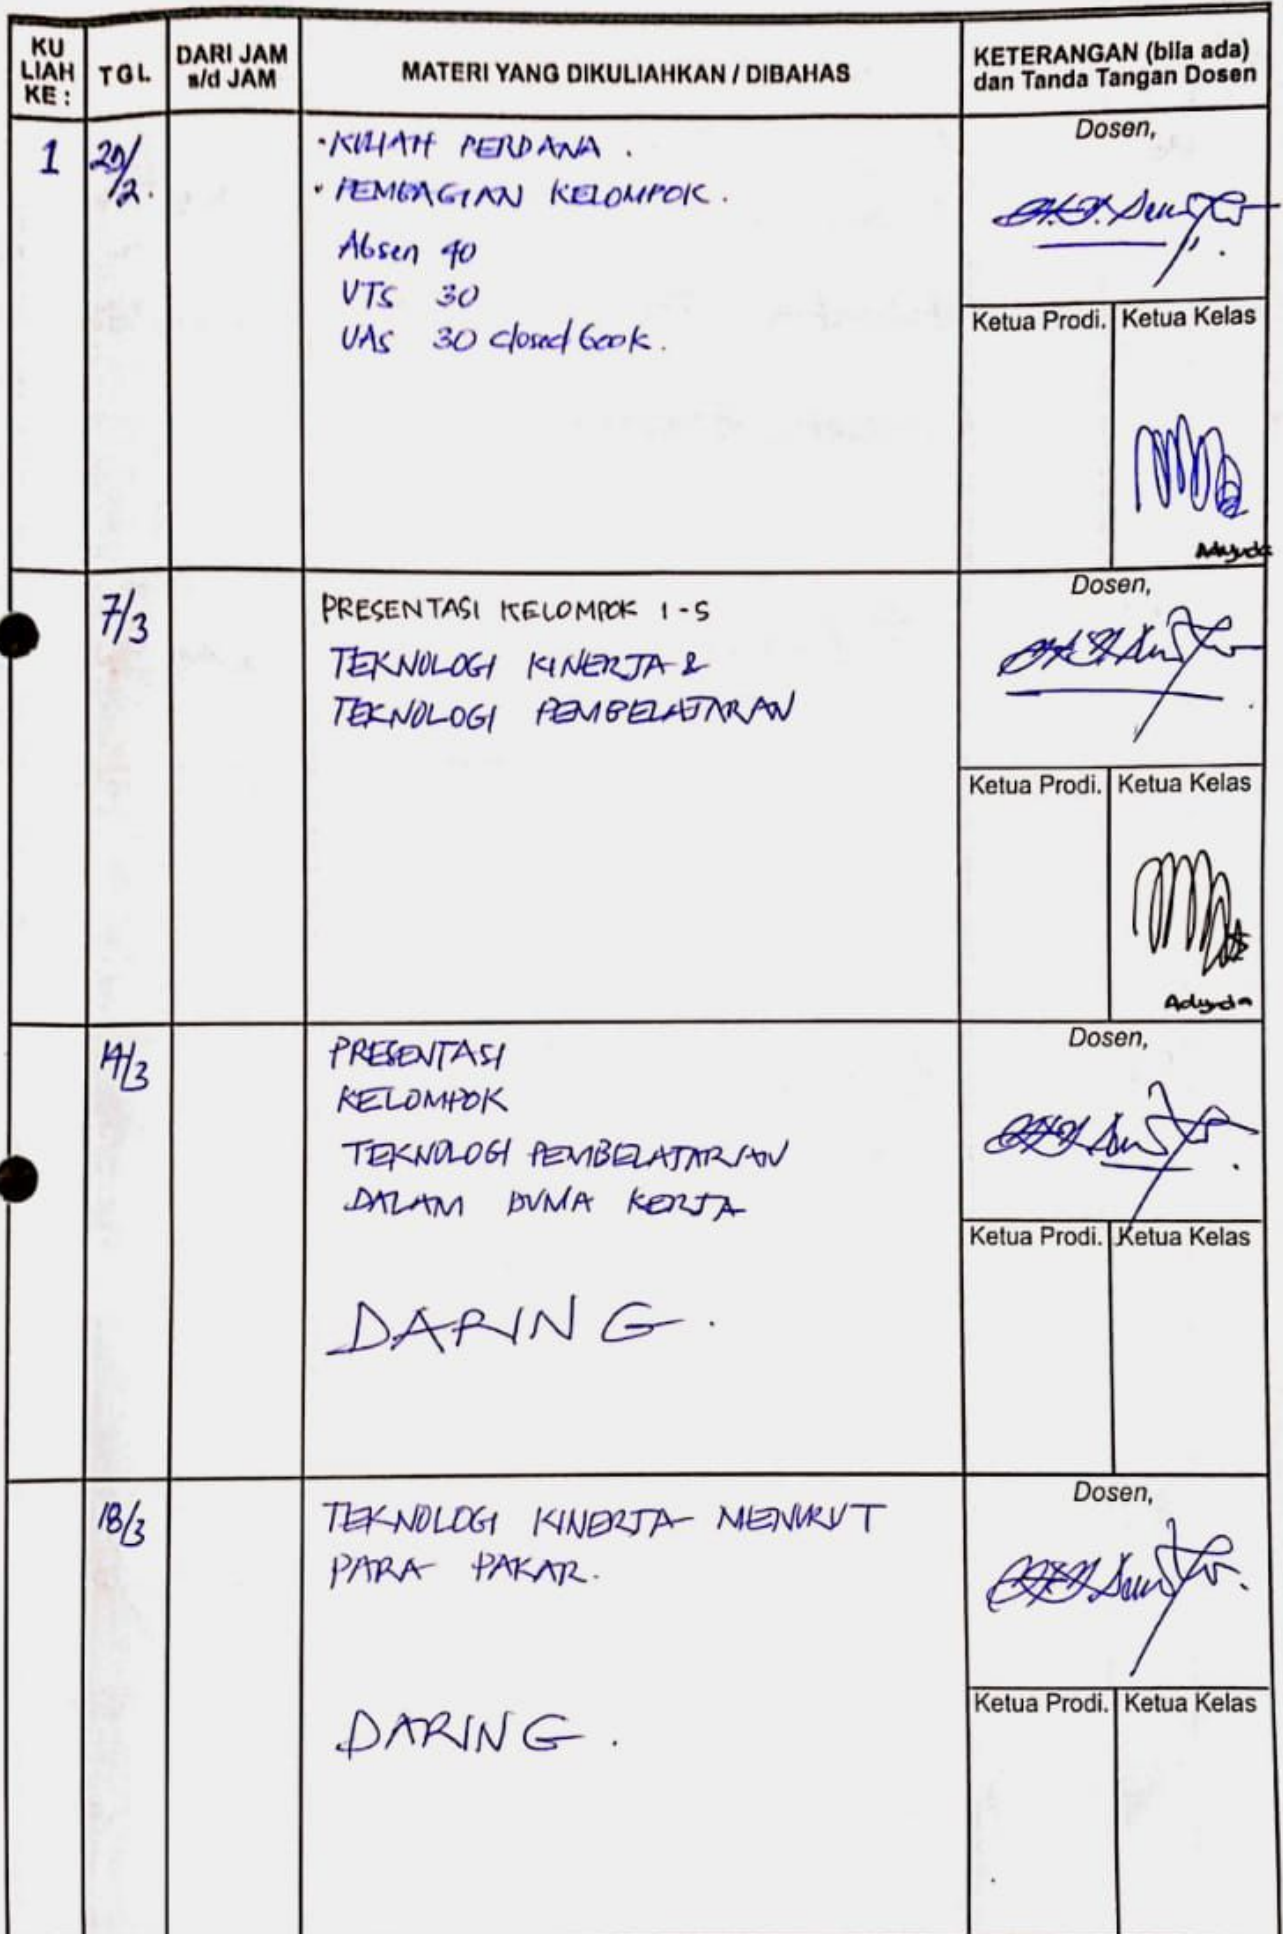 KU
LIAH
KE :
TGL.
DARI JAM
s/d JAM
MATERI YANG DIKULIAHKAN / DIBAHAS
KETERANGAN (bila ada)
dan Tanda Tangan Dosen
1
20/2.
• KULIAH PERDANA .
• PEMBAGIAN KELOMPOK .
Absen 40
UTS 30
UAS 30 closed book .
Dosen,
Ketua Prodi.
Ketua Kelas
7/3
PRESENTASI KELOMPOK 1-5
TEKNOLOGI KINERJA &
TEKNOLOGI PEMBELAJARAN
Dosen,
Ketua Prodi.
Ketua Kelas
Adynda
14/3
PRESENTASI
KELOMPOK
TEKNOLOGI PEMBELAJARAN
DALAM DUNIA KERJA
DARING .
Dosen,
Ketua Prodi.
Ketua Kelas
18/3
TEKNOLOGI KINERJA MENURUT
PARA PAKAR.
DARING .
Dosen,
Ketua Prodi.
Ketua Kelas